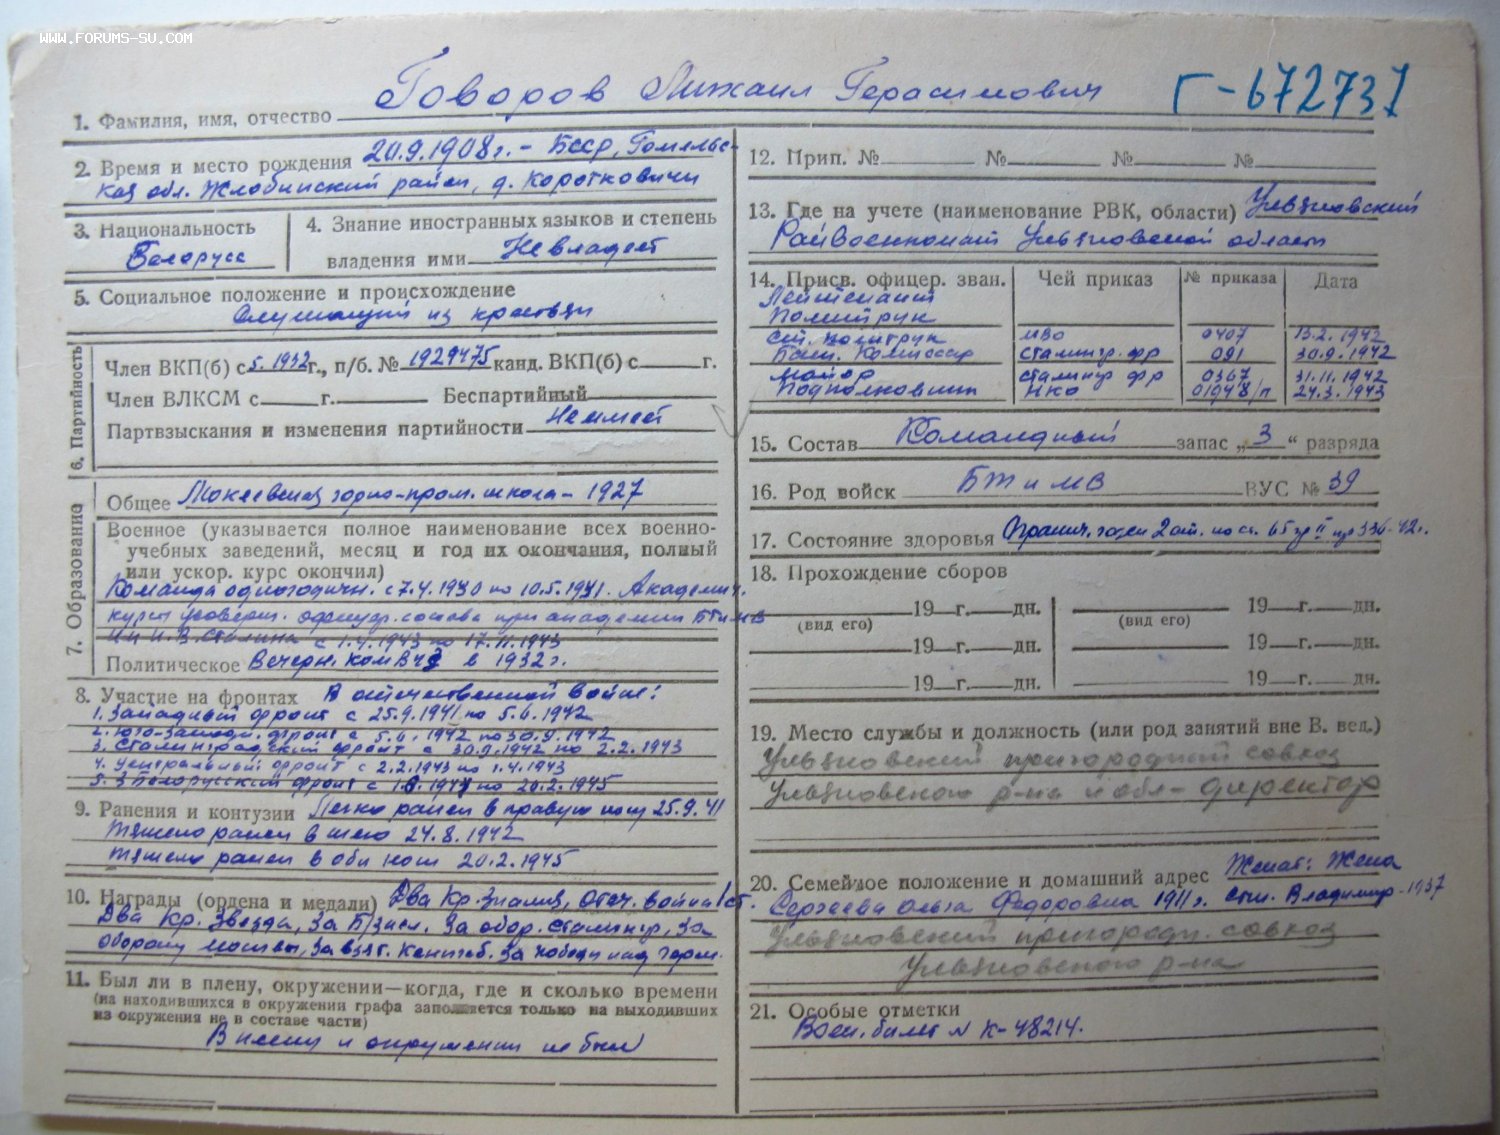 WWW.FORUMS-SU.COM
Г-672731
1. Фамилия, имя, отчество Говоров Михаил Герасимович
2. Время и место рождения 20.9.1908 г. - БССР, Гомельс-
кая обл. Жлобинский район, д. Коротковичи
3. Национальность
Белорусс
4. Знание иностранных языков и степень
владения ими Не владеет
5. Социальное положение и происхождение
Служащий из крестьян
6. Партийность
Член ВКП(б) с 5.1932 г., п/б. № 1929475 канд. ВКП(б) с г.
Член ВЛКСМ с г. Беспартийный
Партвзыскания и изменения партийности Не имеет
7. Образование
Общее горно-пром. школа - 1927
Военное (указывается полное наименование всех военно-
учебных заведений, месяц и год их окончания, полный
или ускор. курс окончил)
Команда одногодичн. с 7.4.1930 по 10.5.1931. Академич.
курсы усоверш. офицер. состава при академии БТ и МВ
им И. В. Сталина с 1.4.1943 по 17.11.1943
Политическое Вечерн. в 1932 г.
8. Участие на фронтах В отечественной войне:
1. Западный фронт с 25.9.1941 по 5.6.1942
2. Юго-Западн. фронт с 5.6.1942 по 30.9.1942
3. Сталинградский фронт с 30.9.1942 по 2.2.1943
4. Центральный фронт с 2.2.1943 по 1.4.1943
5. 3 Белорусский фронт с по 20.2.1945
9. Ранения и контузии Легко ранен в правую ногу 25.9.41
Тяжело ранен в шею 24.8.1942
Тяжело ранен в оби ног 20.2.1945
10. Награды (ордена и медали) Два Кр. Знамя, Отеч. война I ст.
Два Кр. Звезда, За За обор. Сталингр, За
оборону Москвы, За взят. Кенигсб. За победу над герм.
11. Был ли в плену, окружении—когда, где и сколько времени
(на находившихся в окружении графа заполняется только на выходивших
из окружения не в составе части)
В плену и окружении не был
12. Прип. № № № №
13. Где на учете (наименование РВК, области) Ульяновский
Райвоенкомат Ульяновской области
14. Присв. офицер. зван. Чей приказ № приказа Дата
Лейтенант
Политрук
ст. политрук МВО 0407 13.2.1942
Бат. Комиссар Сталингр. фр 091 30.9.1942
Майор Сталингр фр 0367 31.11.1942
Подполковник НКО 01948/п 24.3.1943
15. Состав Командный запас „3“ разряда
16. Род войск БТ и МВ ВУС № 39
17. Состояние здоровья Огранич. годен 2 ст. по ст. 65 гр II пр 336-42 г.
18. Прохождение сборов
19 г. дн. 19 г. дн.
(вид его) (вид его)
19 г. дн. 19 г. дн.
19 г. дн. 19 г. дн.
19. Место службы и должность (или род занятий вне В. вед.)
Ульяновский пригородный совхоз
Ульяновского р-на и обл - директор
20. Семейное положение и домашний адрес Женат: Жена
Сергеева Ольга Федоровна 1911 г. сын. Владимир - 1937
Ульяновский пригородн. совхоз
Ульяновского р-на
21. Особые отметки
Воен. билет N К-48214.